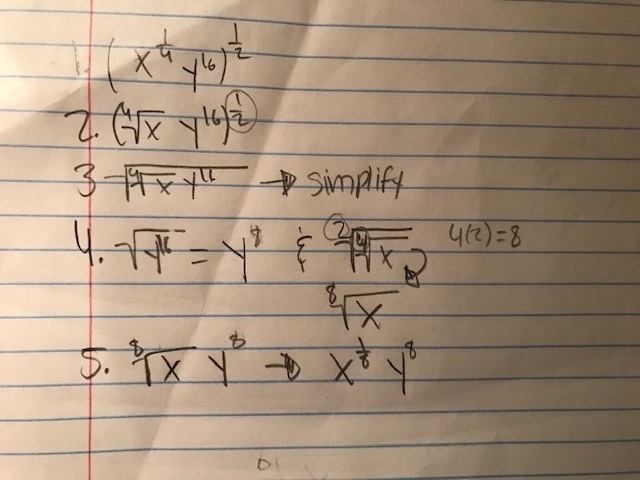 1. (x^{1/4} y^{16})^{1/2}
2. (∜x y^{16})^{1/2}
3 √(∜x y^{16}) → simplify
4. √(y^{16}) = y^8 & ²√(∜x) 4(2)=8
⁸√x
5. ⁸√x y^8 → x^{1/8} y^8